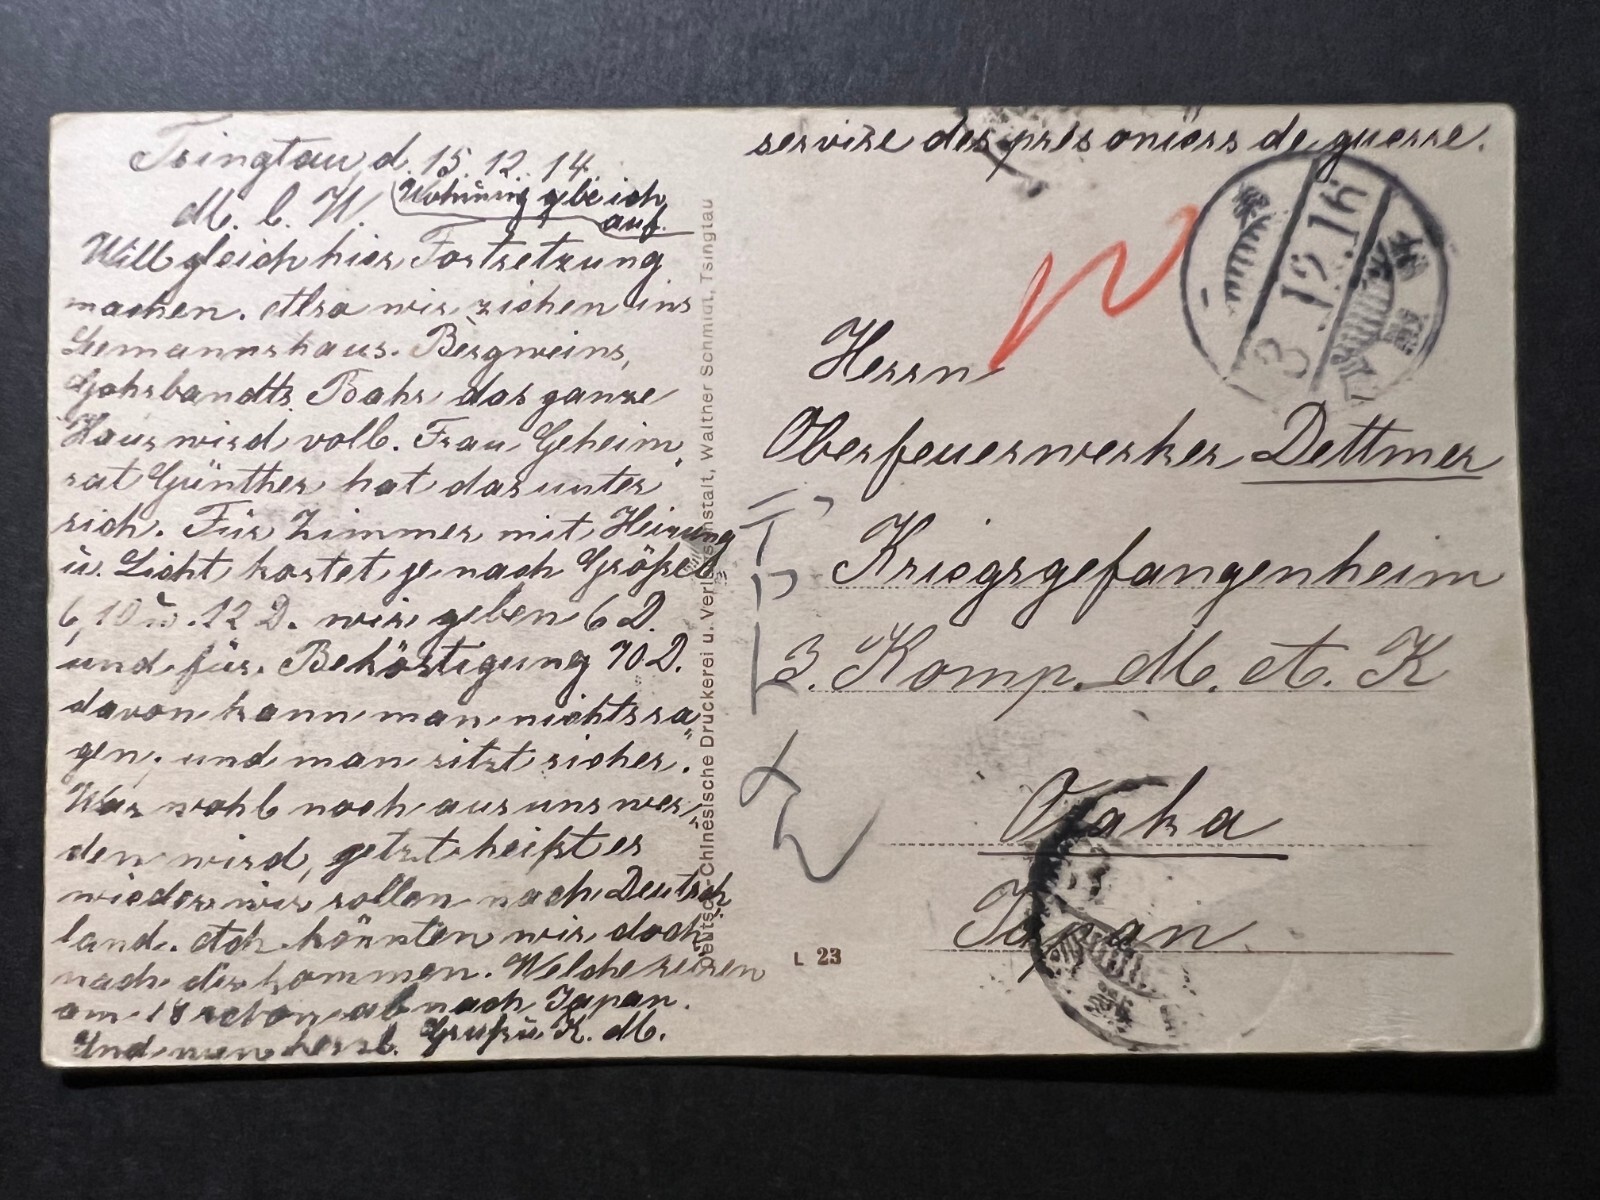 Tsingtau, d. 15. 12. 14.
M. l. W.
Wohnung gebe ich
auf.
Will gleich hier Fortsetzung
machen. Also wir ziehen ins
Seemannshaus. Bergweins,
Gohrbandts, Bahr das ganze
Haus wird voll. Frau Geheim,,
rat Günther hat das unter
sich. Für Zimmer mit Heizung
u. Licht kostet je nach Größe
6, 10 u. 12 D. wir geben 6 D.
und für Beköstigung 70 D.
davon kann man nichts sa,,
gen, und man sitzt sicher.
Was wohl noch aus uns wer,,
den wird, jetzt heißt es
wieder wir sollen nach Deutsch
land. Ach könnten wir doch
nach dir kommen. Welche reisen
am 18 schon ab nach Japan.
Und nun herzl. Gruß u. K. M.
Deutsch-Chinesische Druckerei u. Verlagsanstalt, Walther Schmidt, Tsingtau
L 23
servise des prisoniers de guerre.
3.12.16
Herrn
Oberfeuerwerker Dettmer
Kriegsgefangenheim
3. Komp. M. A. K
Osaka
Japan